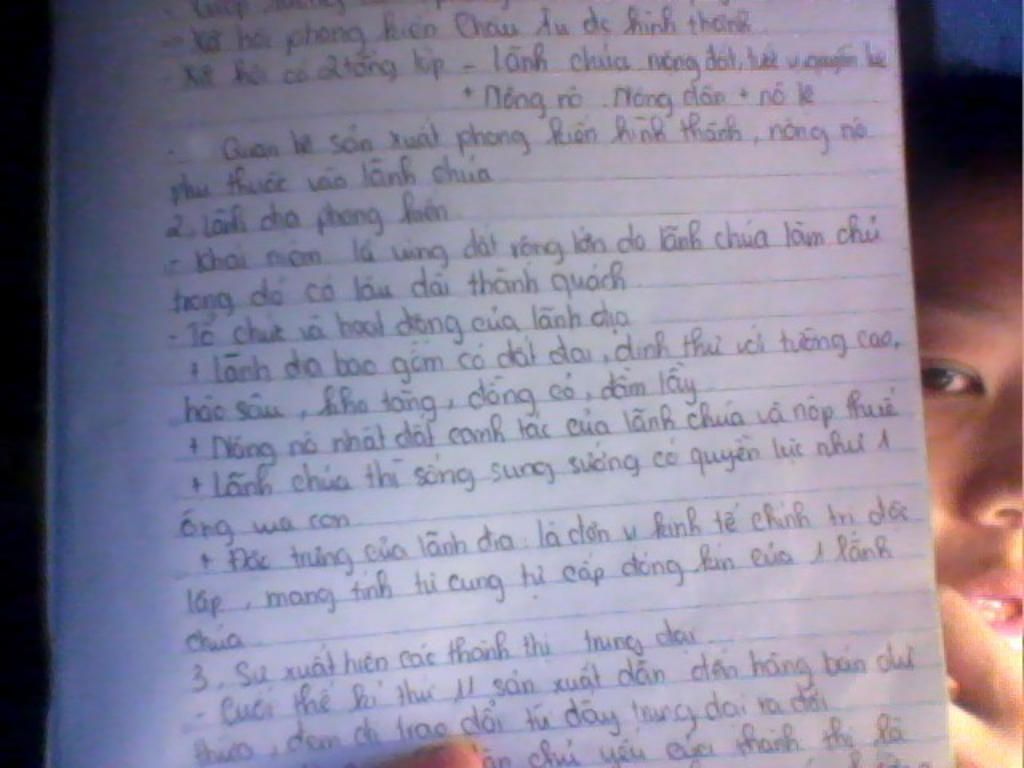 - Xã hội phong kiến Châu Âu đc hình thành
- Xã hội có 2 tầng lớp - lãnh chúa nông đất,
+ Nông nô . Nông dân + nô lệ
- Quan hệ sản xuất phong kiến hình thành, nông nô
phụ thuộc vào lãnh chúa
2. Lãnh địa phong kiến
- Khái niệm là vùng đất rộng lớn do lãnh chúa làm chủ
trong đó có lâu đài thành quách
- Tổ chức và hoạt động của lãnh địa
+ Lãnh địa bao gồm có đất đai, dinh thự với tường cao,
hào sâu, kho tàng, đồng cỏ, đầm lầy
+ Nông nô nhất đất canh tác của lãnh chúa và nộp thuế
+ Lãnh chúa thì sống sung sướng có quyền lực như 1
ông vua con
+ Đặc trưng của lãnh địa là đơn vị kinh tế chính trị độc
lập, mang tính tự cung tự cấp đóng kín của 1 lãnh
chúa
3. Sự xuất hiện các thành thị trung đại
- Cuối thế kỉ thứ 11 sản xuất dẫn đến hàng bán dư
thừa, đem đi trao đổi từ đây trung đại ra đời
chủ yếu của thành thị là